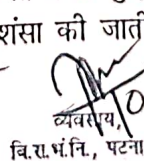 शंसा की जाती
व्यवसाय,
वि.रा.भं.नि., पटना